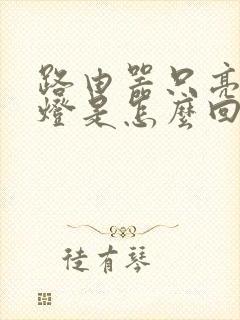 路由器只亮
燈是怎麼回
徒有琴